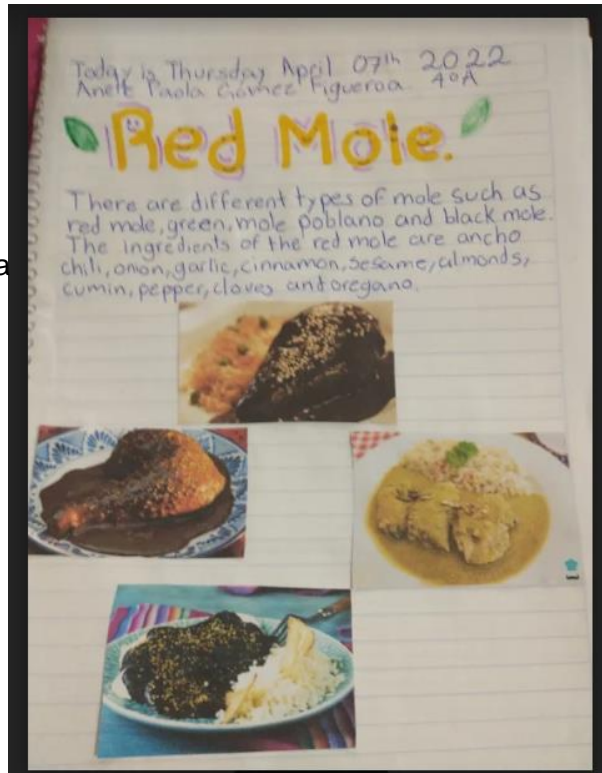 Today is Thursday April 07th 2022
Anett Paola Gómez Figueroa. 4°A
Red Mole.
There are different types of mole such as
red mole, green, mole poblano and black mole.
The ingredients of the red mole are ancho
chili, onion, garlic, cinnamon, sesame, almonds,
cumin, pepper, cloves and oregano.
a